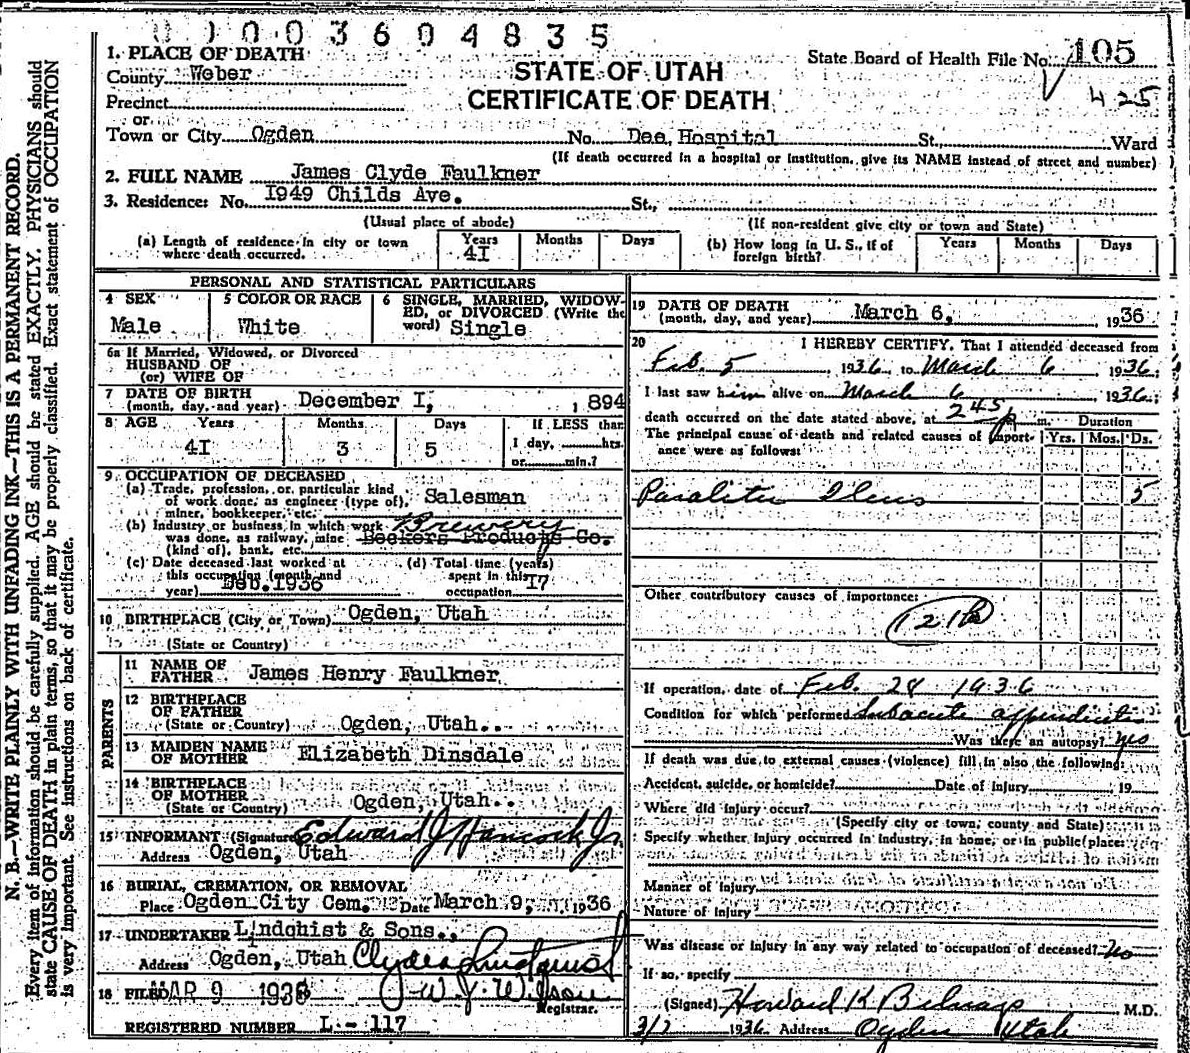 00003604835
N. B.—WRITE PLAINLY WITH UNFADING INK—THIS IS A PERMANENT RECORD.
Every item of information should be carefully supplied. AGE should be stated EXACTLY. PHYSICIANS should
state CAUSE OF DEATH in plain terms, so that it may be properly classified. Exact statement of OCCUPATION
is very important. See instructions on back of certificate.
STATE OF UTAH
CERTIFICATE OF DEATH
State Board of Health File No. 105
425
1. PLACE OF DEATH
County Weber
Precinct
or
Town or City Ogden No. Dee, Hospital St., Ward
(If death occurred in a hospital or institution, give its NAME instead of street and number)
2. FULL NAME James Clyde Faulkner
3. Residence: No. I949 Childs Ave. St.,
(Usual place of abode) (If non-resident give city or town and State)
(a) Length of residence in city or town where death occurred. Years 4I Months Days
(b) How long in U. S., if of foreign birth? Years Months Days
PERSONAL AND STATISTICAL PARTICULARS
4 SEX Male
5 COLOR OR RACE White
6 SINGLE, MARRIED, WIDOWED, OR DIVORCED (Write the word) Single
6a If Married, Widowed, or Divorced
HUSBAND OF
(or) WIFE OF
7 DATE OF BIRTH
(month, day, and year) December I, 894
8 AGE Years 4I Months 3 Days 5 If LESS than
1 day, hrs.
or min.?
9 OCCUPATION OF DECEASED
(a) Trade, profession, or particular kind
of work done, as engineer (type of), Salesman
miner, bookkeeper, etc.
(b) Industry or business in which work Brewery
was done, as railway, mine Beckers Products Co.
(kind of), bank, etc.
(c) Date deceased last worked at
this occupation (month and
year) Feb. 1936
(d) Total time (years)
spent in this
occupation I7
10 BIRTHPLACE (City or Town) Ogden, Utah
(State or Country)
PARENTS
11 NAME OF
FATHER James Henry Faulkner
12 BIRTHPLACE
OF FATHER
(State or Country) Ogden, Utah..
13 MAIDEN NAME
OF MOTHER Elizabeth Dinsdale
14 BIRTHPLACE
OF MOTHER
(State or Country) Ogden, Utah..
15 INFORMANT (Signature) Edward J Hancock Jr.
Address Ogden, Utah
16 BURIAL, CREMATION, OR REMOVAL
Place Ogden City Cem. Date March 9, 1936
17 UNDERTAKER Lindqhist & Sons.,
Address Ogden, Utah Clyde Lindquist
18 FILED MAR 9 1936 W. J. Wilson
Registrar.
REGISTERED NUMBER L - 117
19 DATE OF DEATH
(month, day, and year) March 6, 1936
20 I HEREBY CERTIFY, That I attended deceased from
Feb. 5, 1936, to March 6 1936;
I last saw him alive on March 6 1936;
death occurred on the date stated above, at 245 p m.
The principal cause of death and related causes of importance were as follows:
Duration
Yrs. Mos. Ds.
Paralitic Ileus 5
Other contributory causes of importance:
121b
If operation, date of Feb. 28 1936
Condition for which performed Subacute appendicitis
Was there an autopsy? yes
If death was due to external causes (violence) fill in also the following:
Accident, suicide, or homicide? Date of injury 19
Where did injury occur?
(Specify city or town, county and State)
Specify whether injury occurred in industry, in home, or in public place:
Manner of Injury
Nature of Injury
Was disease or injury in any way related to occupation of deceased? No
If so, specify
(Signed) Howard K Belnap M.D.
3/7 1936 Address Ogden Utah